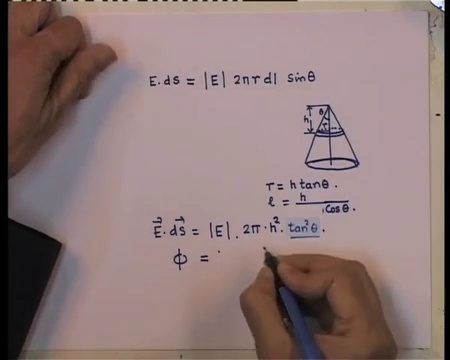 E. ds = |E| 2πr dl sinθ
θ
h
r
r = h tanθ.
ℓ = h / cosθ.
E⃗. ds⃗ = |E|. 2π · h². tan²θ.
ϕ =